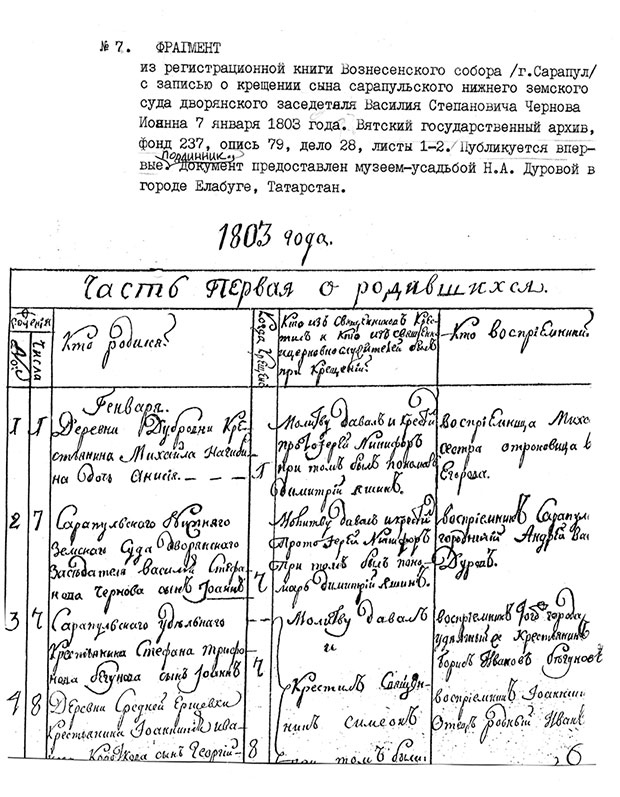 № 7. ФРАГМЕНТ
из регистрационной книги Вознесенского собора /г.Сарапул/
с записью о крещении сына сарапульского нижнего земского
суда дворянского заседетяля Василия Степановича Чернова
Иоанна 7 января 1803 года. Вятский государственный архив,
фонд 237, опись 79, дело 28, листы 1-2. Публикуется впер-
подлинник
вые. Документ предоставлен музеем-усадьбой Н.А. Дуровой в
городе Елабуге, Татарстан.
1803 года.
Часть первая о родившихся.
Числа
Кто родился.
Когда крещены
Кто изъ священниковъ кре-
стилъ и кто изъ священно
и церковнослужителей былъ
при крещении.
Кто восприемники
Генваря.
1 1 Деревни Дубровки кре-
стьянина Михайла
на дочь Анисия.
1
Молитву давалъ и крестилъ
протоиерей Никифоръ
при томъ былъ пономарь
Димитрий Яшинъ.
восприемница
сестра
Егорова.
2 7 Сарапульского нижняго
Земскаго Суда дворянскаго
Заседателя Василия Стефа-
нова Чернова сынъ Иоаннъ
7
Молитву давалъ и крестилъ
Протоиерей Никифоръ
При томъ былъ поно-
марь Димитрий Яшинъ.
восприемникъ Сарапул
городничий Андрей Ва
Дуровъ.
3 7 Сарапульскаго удельнаго
крестьянина Стефана Трифо-
нова Бегунова сынъ Иоаннъ
7
Молитву давалъ
и
восприемникъ того города
удельный крестьянинъ
Борисъ Ивановъ Бегуновъ
4 8 Деревни Средней Ершевки
Крестьянина
сынъ Георгий
8
Крестилъ Священ-
никъ Симеонъ
при томъ были
восприемникъ
6